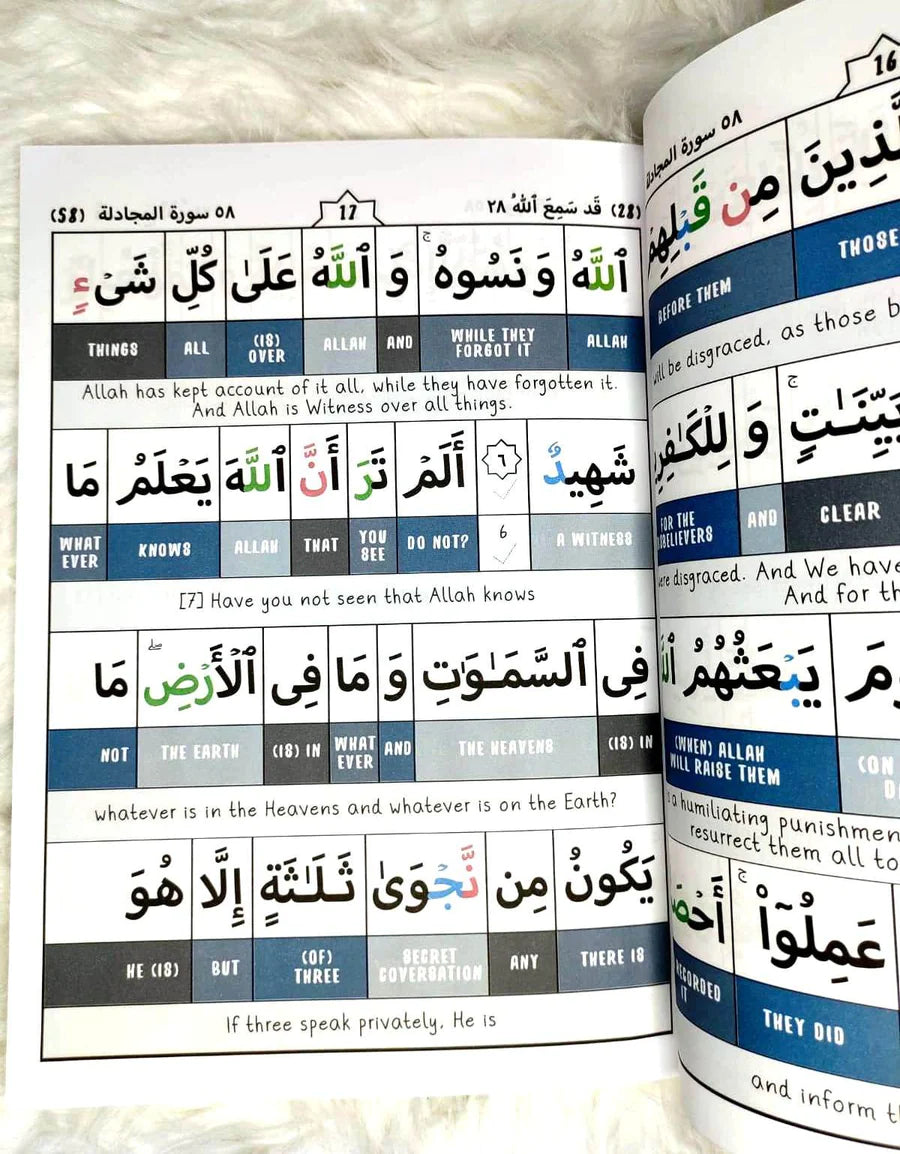 16
٥٨ سورة المجادلة
مِن قَبْلِهِمْ
BEFORE THEM THOSE
be disgraced, as those
بَيِّنَـٰتٍ ۚ وَ
FOR THE AND CLEAR
disgraced. And We have
And for
يَبْعَثُهُمُ
(WHEN) ALLAH WILL RAISE THEM (ON
a humiliating
resurrect them all to
عَمِلُوٓا۟ ۚ
RECORDED IT THEY DID
and inform
(28) قَد سَمِعَ ٱللَّهُ ٢٨ 17 ٥٨ سورة المجادلة (58)
ٱللَّهُ وَ نَسُوهُ ۚ وَ ٱللَّهُ عَلَىٰ كُلِّ شَىْءٍ
THINGS ALL (IS) OVER ALLAH AND WHILE THEY FORGOT IT ALLAH
Allah has kept account of it all, while they have forgotten it.
And Allah is Witness over all things.
شَهِيدٌ ٦ أَلَمْ تَرَ أَنَّ ٱللَّهَ يَعْلَمُ مَا
WHAT EVER KNOWS ALLAH THAT YOU SEE DO NOT? 6 A WITNESS
[7] Have you not seen that Allah knows
فِى ٱلسَّمَـٰوَٰتِ وَ مَا فِى ٱلْأَرْضِ ۖ مَا
NOT THE EARTH (IS) IN WHAT EVER AND THE HEAVENS (IS) IN
whatever is in the Heavens and whatever is on the Earth?
يَكُونُ مِن نَّجْوَىٰ ثَلَـٰثَةٍ إِلَّا هُوَ
HE (IS) BUT (OF) THREE SECRET COVERSATION ANY THERE IS
If three speak privately, He is